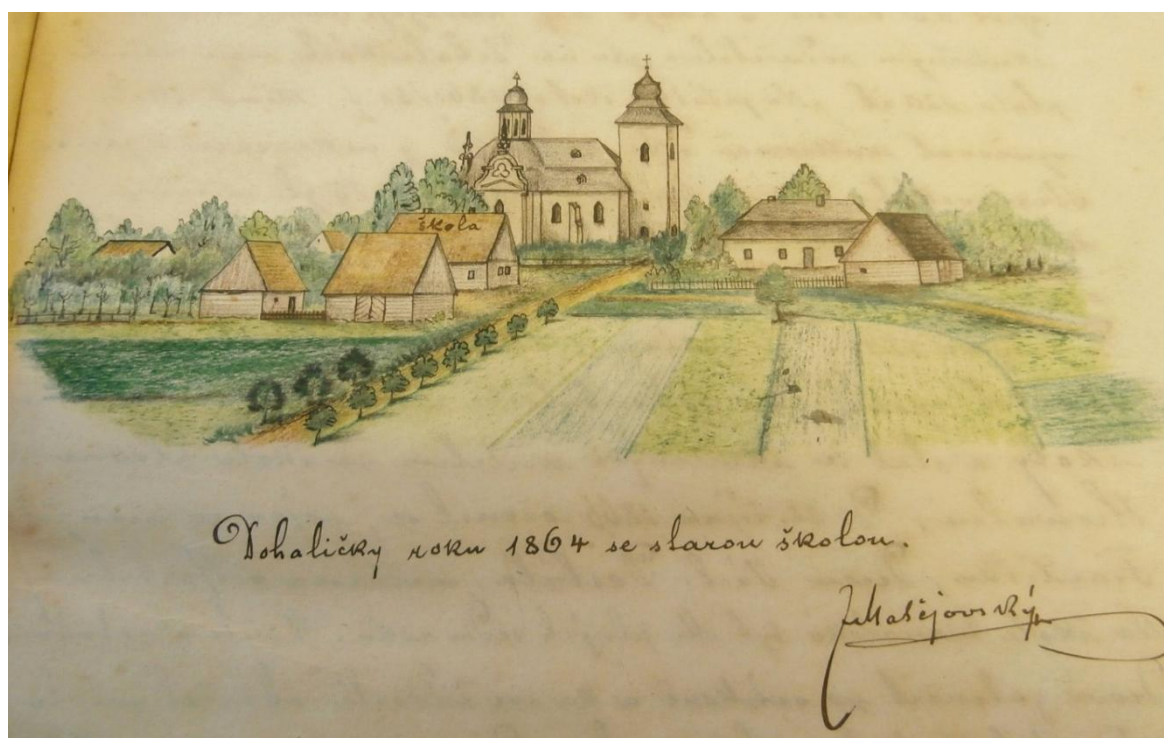 škola
Dohaličky roku 1864 se starou školou.
JMatějovský